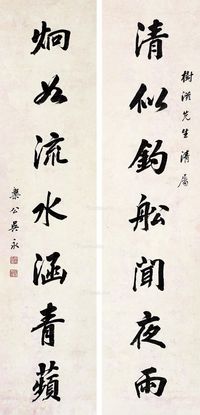 樹滋先生清屬
清似釣船聞夜雨
炯如流水涵青蘋
槃公吳永